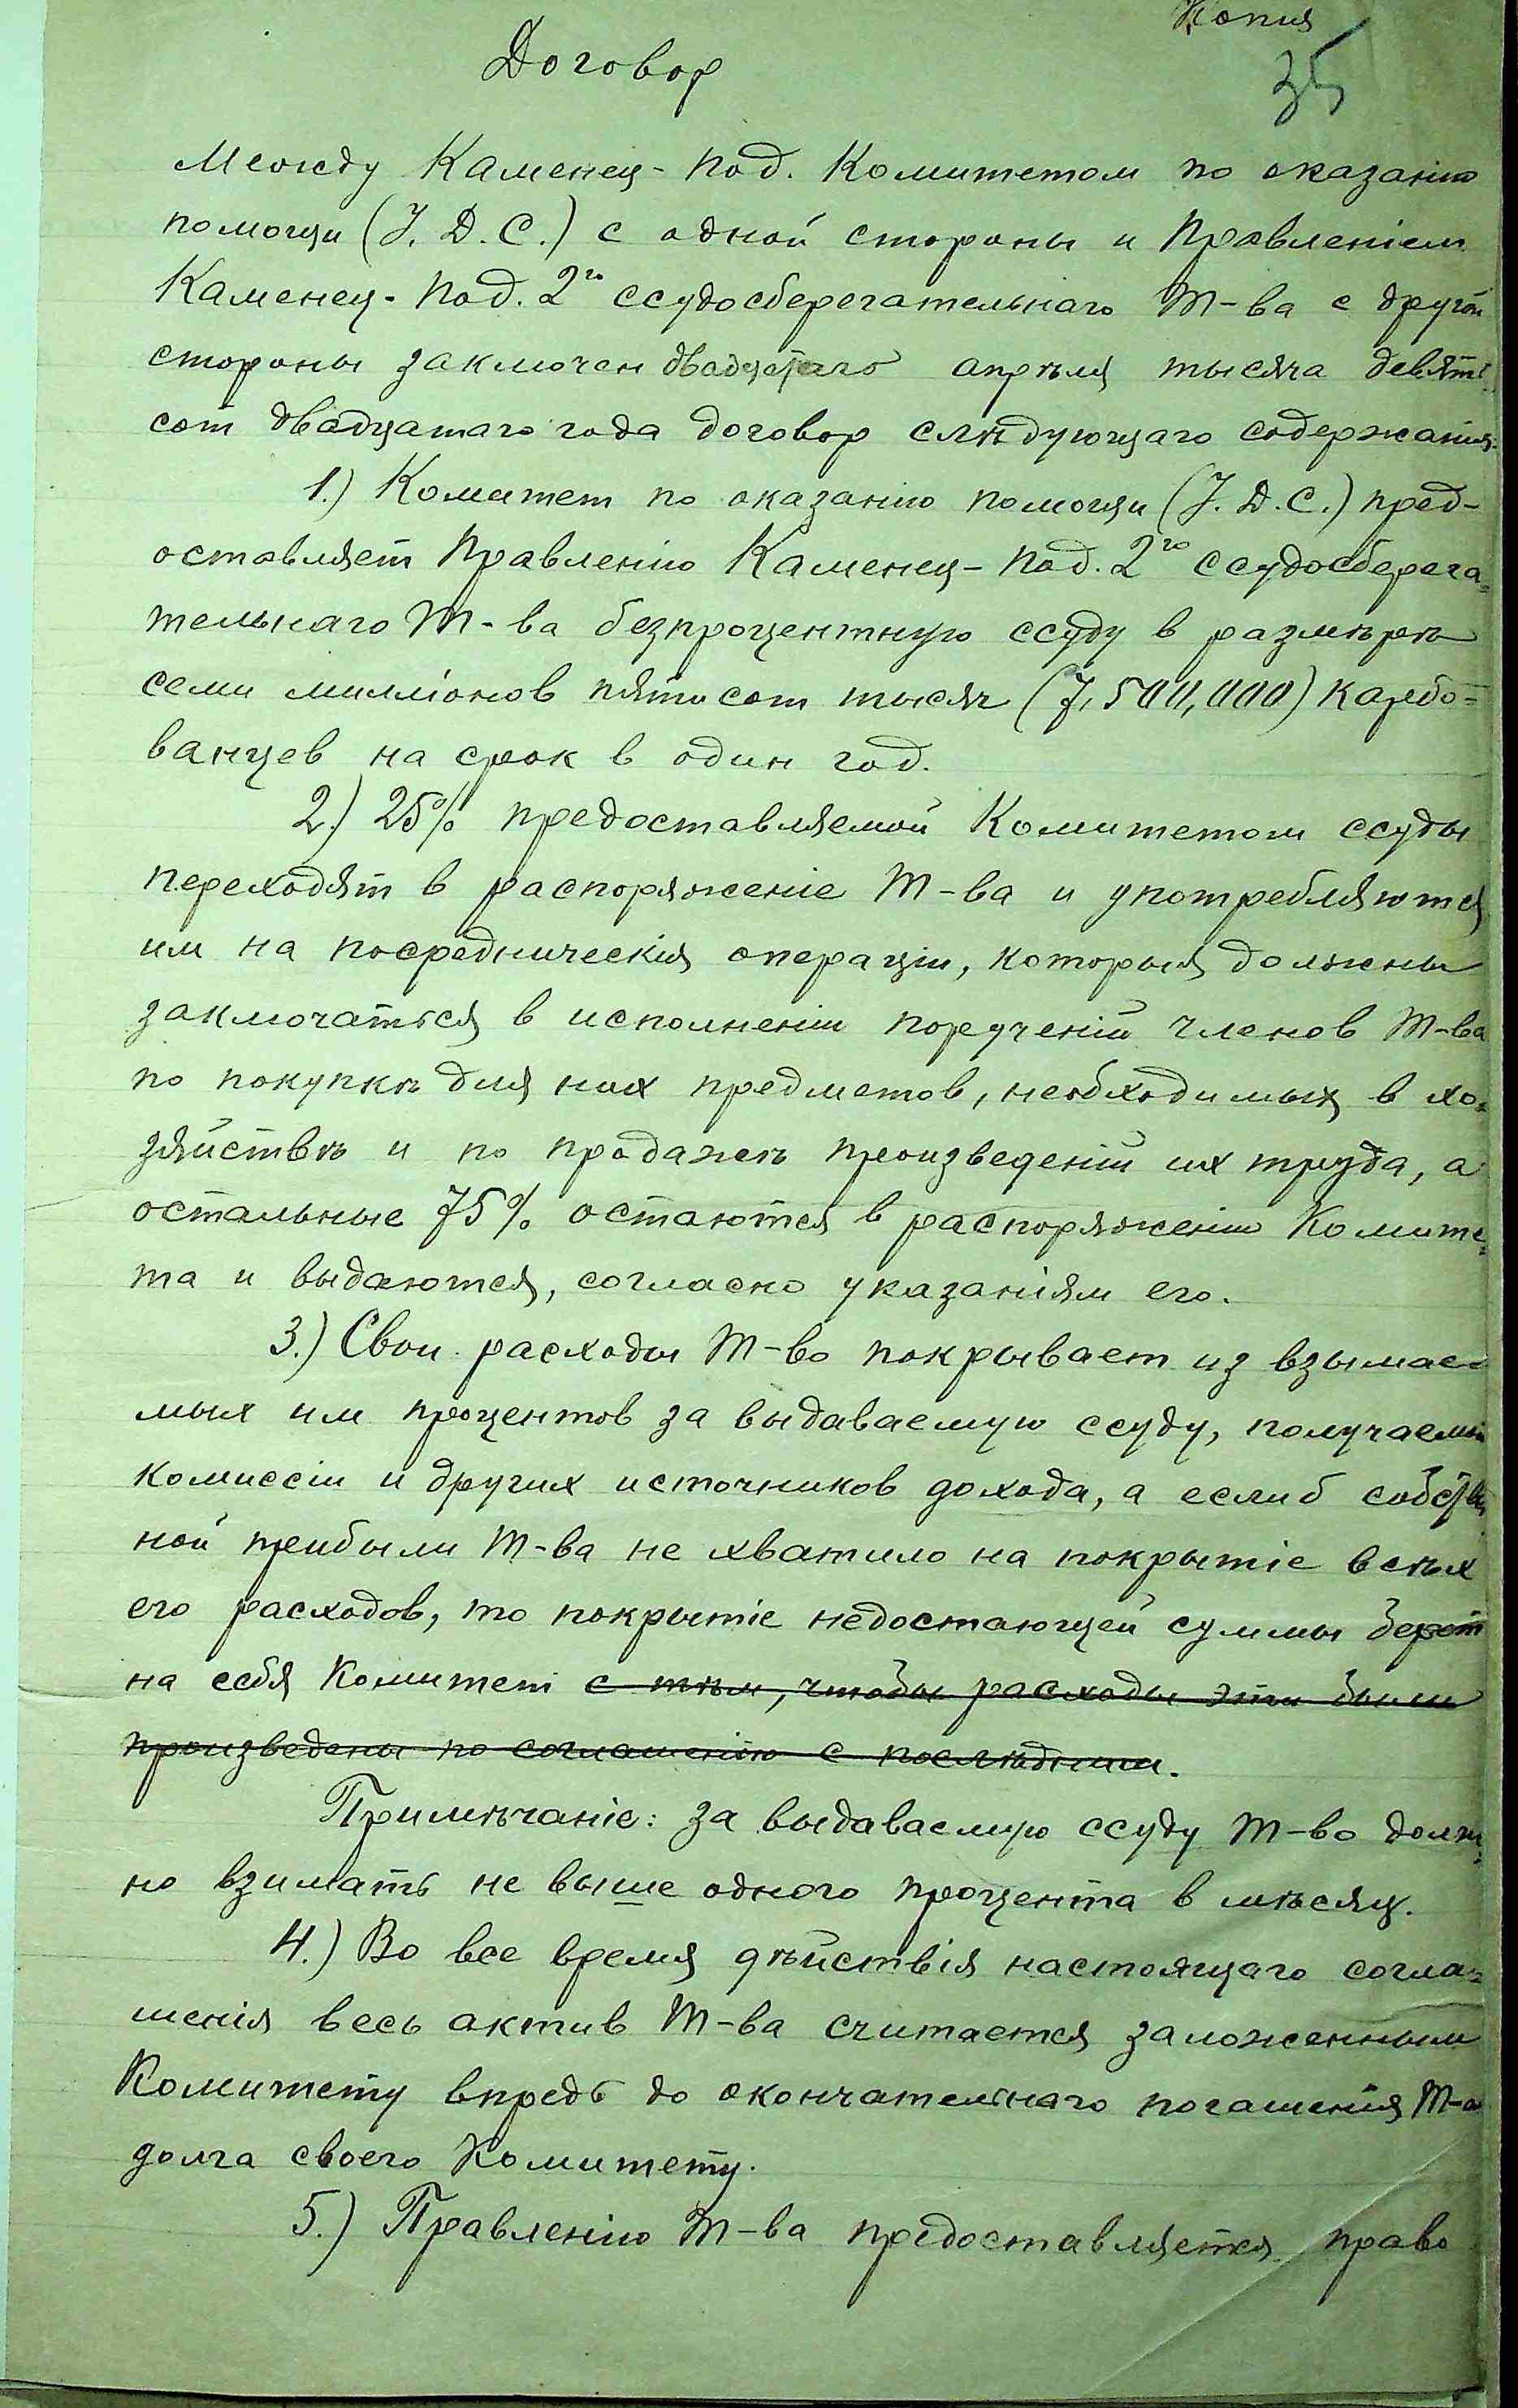 Копия
Договор
35
Между Каменец-Под. Комитетом по оказанію
помощи (J. D. C.) с одной стороны и Правленіем
Каменец-Под. 2го ссудосберегательнаго Т-ва с другой
стороны заключен двадцатаго апрѣля тысяча девять-
сот двадцатаго года договор слѣдующаго содержания:
1.) Комитет по оказанію помощи (J. D. C.) пред-
оставляет Правленію Каменец-Под. 2го ссудосберега-
тельнаго Т-ва безпроцентную ссуду в размѣрѣ
семи милліонов пятисот тысяч (7,500,000) карбо-
ванцев на срок в один год.
2.) 25% предоставляемой Комитетом ссуды
переходят в распоряженіе Т-ва и употребляются
им на посредническія операціи, которыя должны
заключаться в исполненіи порученій членов Т-ва
по покупкѣ для них предметов, необходимых в хо-
зяйствѣ и по продажѣ произведеній их труда, а
остальные 75% остаются в распоряженіи Комите-
та и выдаются, согласно указаніям его.
3.) Свои расходы Т-во покрывает из взымае-
мых им процентов за выдаваемую ссуду, получаемой
комиссіи и других источников дохода, а еслиб собствен
ной прибыли Т-ва не хватило на покрытіе всѣх
его расходов, то покрытіе недостающей суммы берет
на себя Комитет с тѣм, чтобы расходы эти были
произведены по соглашенію с послѣдним.
Примѣчаніе: за выдаваемую ссуду Т-во долж-
но взимать не выше одного процента в мѣсяц.
4.) Во все время дѣйствія настоящаго согла-
шенія весь актив Т-ва считается заложенным
Комитету впредь до окончательнаго погашения Т-м
долга своего Комитету.
5.) Правленію Т-ва предоставляется право